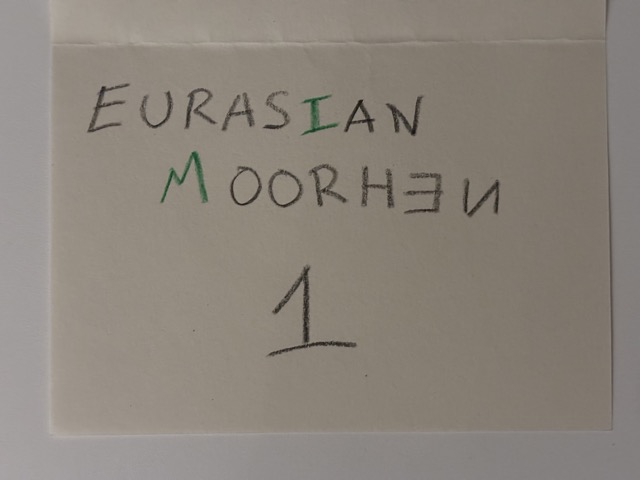 EURASIAN
MOORHƎИ
1